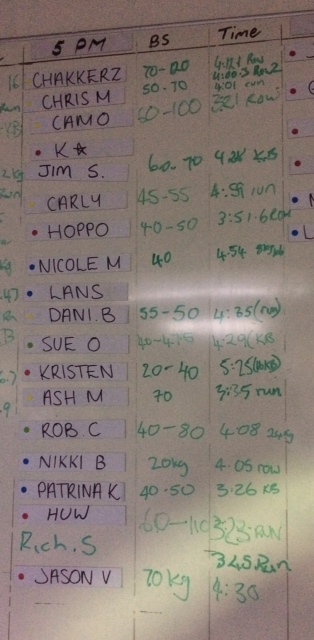 5 PM BS Time
CHAKKERZ 70-120 4:12.1 Row
4:00.3 Row2
CHRIS M 50-70 4:01 run
CAMO 60-100 3:21 Row
K☆
JIM S. 60-70 KB
CARLY 45-55 4:59 run
HOPPO 40-50 3:51.6 ROW
NICOLE M 40 4:54
LANS
DANI.B 55-50 4:35 (run)
SUE O 40-47.5 4:29 (KB
KRISTEN 20-40 5:25
ASH M 70 3:35 run
ROB.C 40-80 4:08 24kg
NIKKI B 20kg 4:05 row
PATRINA K 40-50 3:26 KB
HUW 60-110 3:23 RUN
Rich.S 3:45 Run
JASON V 70kg 4:30